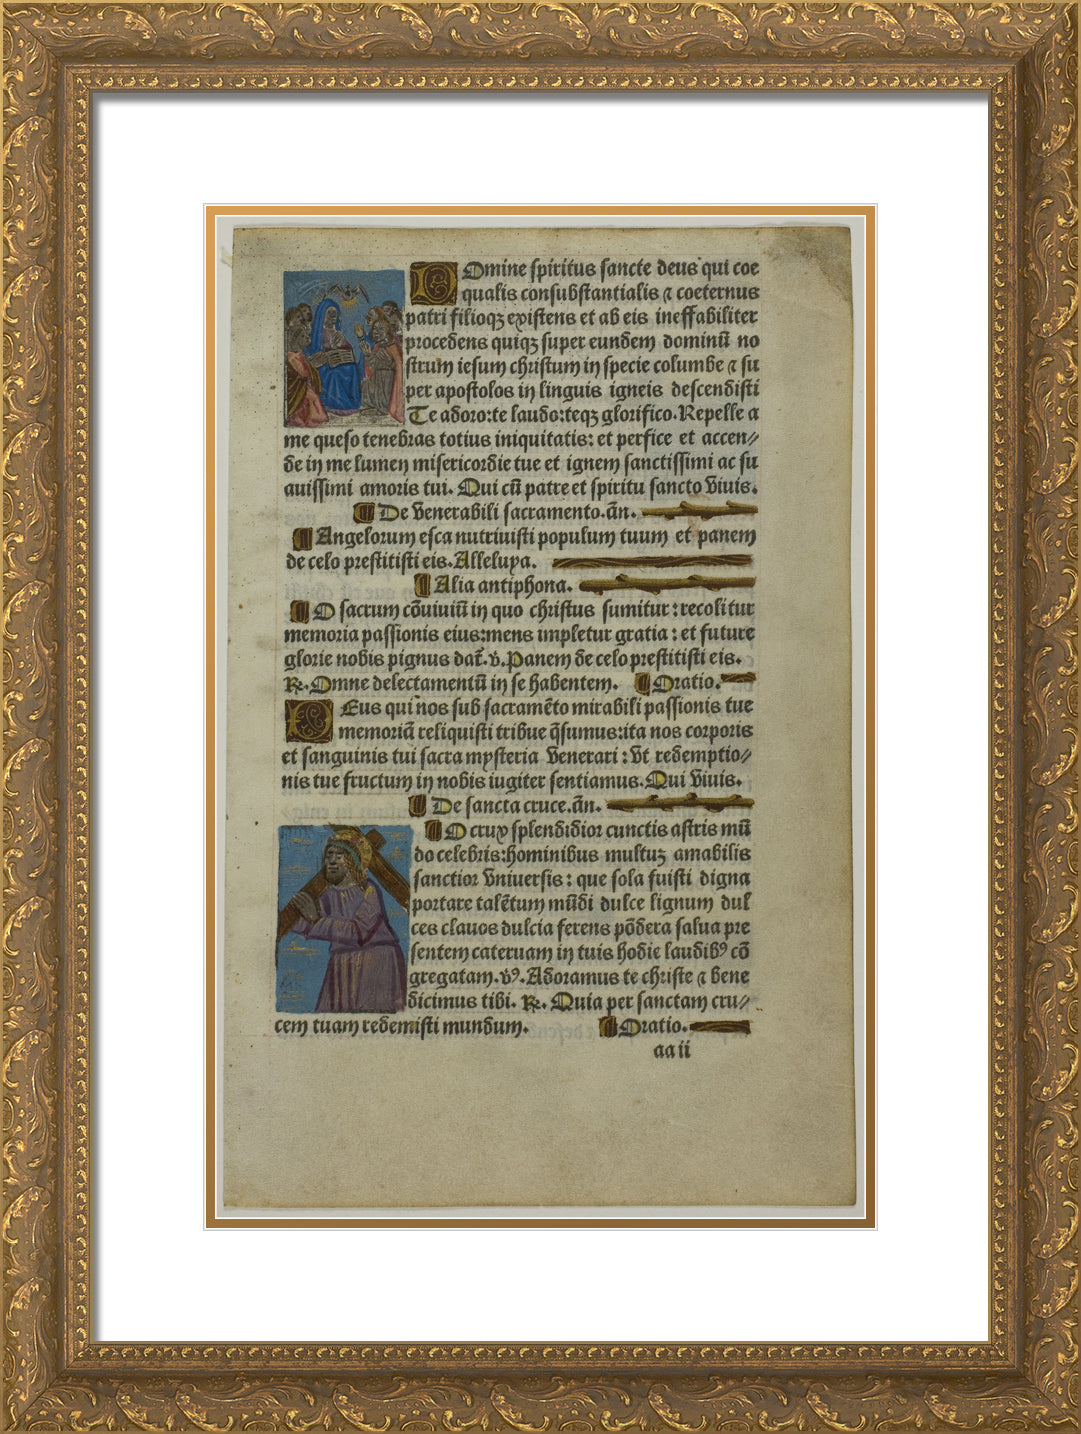 Domine spiritus sancte deus qui coe
qualis consubstantialis ⁊ coeternus
patri filioqꝫ existens et ab eis ineffabiliter
procedens quiqꝫ super eundem dominū no
strum iesum christum in specie columbe ⁊ su
per apostolos in linguis igneis descendisti
Te adoro:te laudo:teqꝫ glorifico. Repelle a
me queso tenebras totius iniquitatis: et perfice et accen⸗
de in me lumen misericordie tue et ignem sanctissimi ac su
auissimi amoris tui. Qui cū patre et spiritu sancto viuis.
De venerabili sacramento.añ.
Angelorum esca nutriuisti populum tuum et panem
de celo prestitisti eis. Alleluya.
Alia antiphona.
O sacrum cōuiuiū in quo christus sumitur : recolitur
memoria passionis eius:mens impletur gratia : et future
glorie nobis pignus dat̄.v. Panem de celo prestitisti eis.
℞. Omne delectamentū in se habentem. Oratio.
DEus qui nos sub sacramēto mirabili passionis tue
memoriā reliquisti tribue q̄sumus:ita nos corporis
et sanguinis tui sacra mysteria venerari : vt redemptio⸗
nis tue fructum in nobis iugiter sentiamus. Qui viuis.
De sancta cruce.añ.
O crux splendidior cunctis astris mū
do celebris:hominibus multuꝫ amabilis
sanctior vniuersis : que sola fuisti digna
portare talētum mūdi dulce lignum dul
ces clauos dulcia ferens pōdera salua pre
sentem cateruam in tuis hodie laudibꝰ cō
gregatam.vꝰ. Adoramus te christe ⁊ bene
dicimus tibi. ℞. Quia per sanctam cru⸗
cem tuam redemisti mundum. Oratio.
aa ii